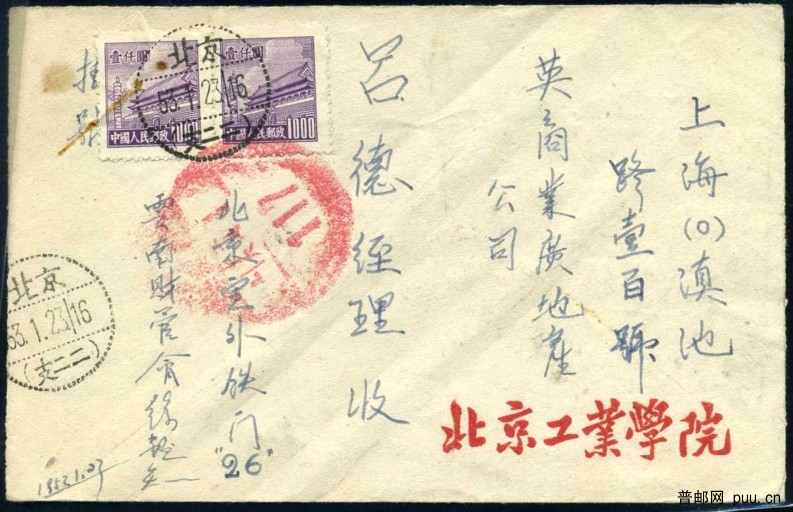 上海(0)滇池
路壹百號
英商業廣地產
公司
呂德經理收
北京宣外鉄门
"26"
雲南財管會
挂號
壹仟圓
壹仟圓
中國人民郵政 1000
中國人民郵政 1000
北京
53.1.23/16
(支二二)
117
北京
53.1.23/16
(支二二)
1953.1.23
北京工業學院
普邮网 puu.cn